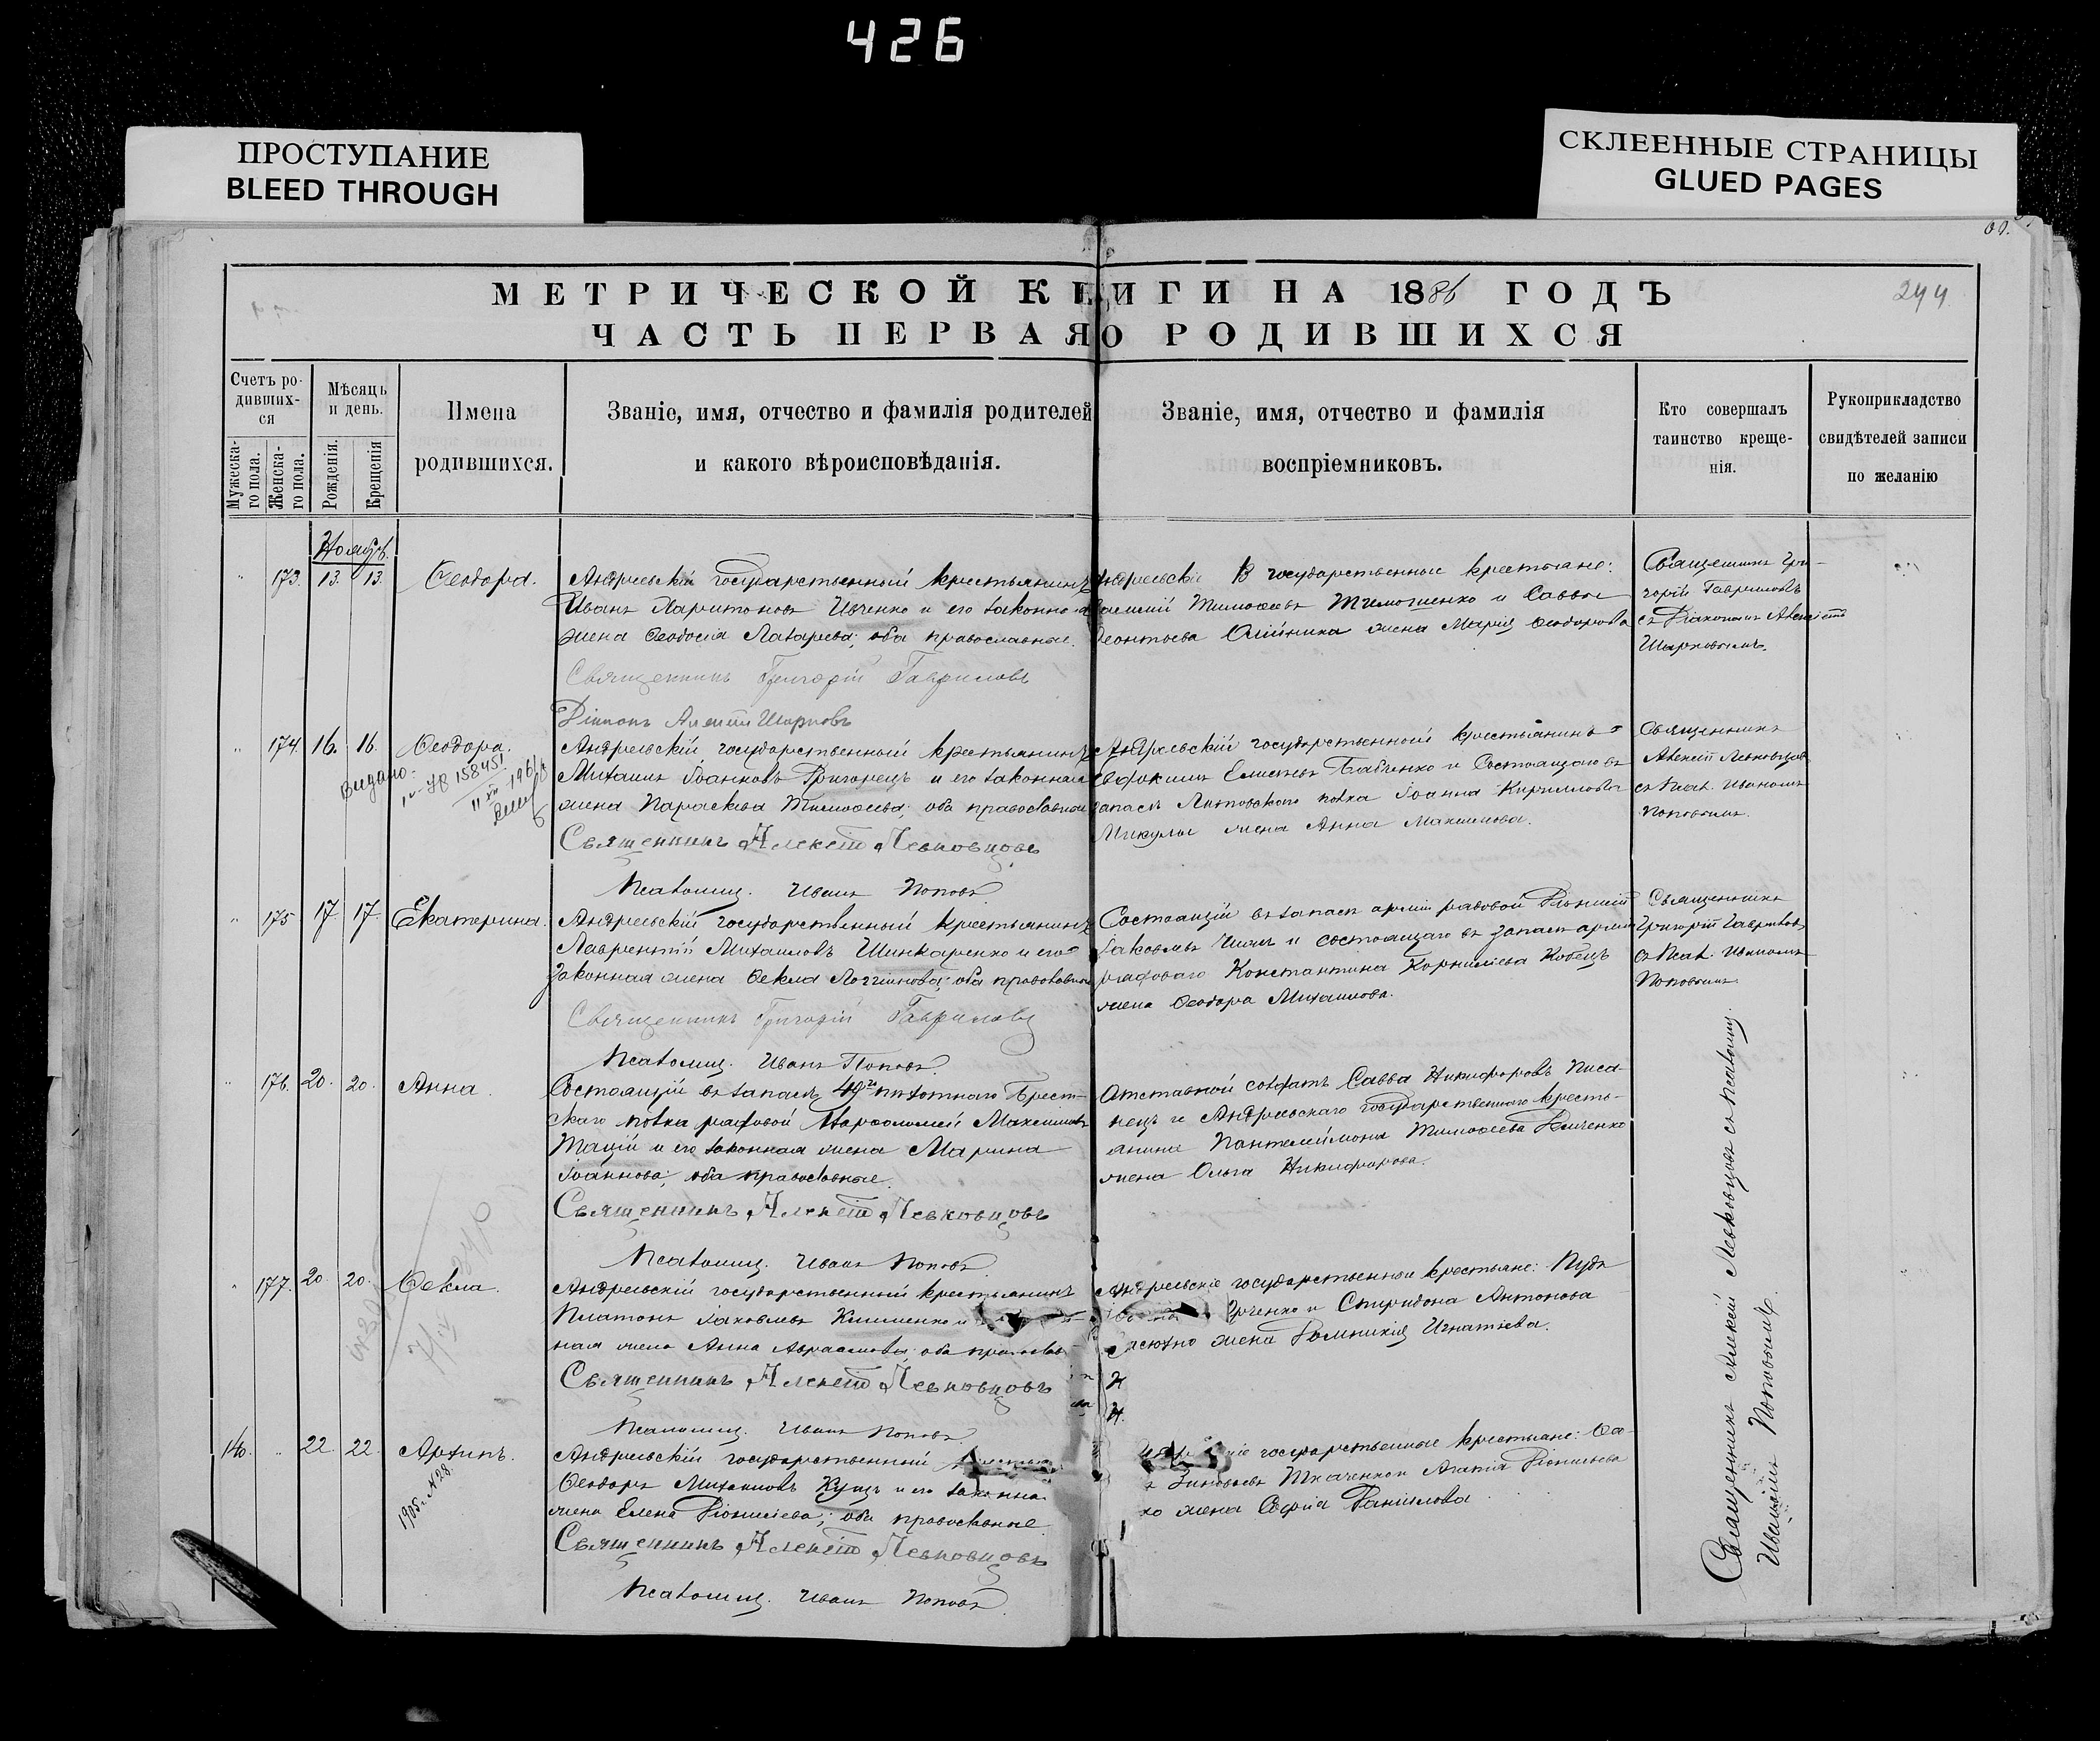 426
ПРОСТУПАНИЕ
BLEED THROUGH
СКЛЕЕННЫЕ СТРАНИЦЫ
GLUED PAGES
МЕТРИЧЕСКОЙ КНИГИ НА 1886 ГОДЪ
244
ЧАСТЬ ПЕРВАЯ О РОДИВШИХСЯ
Счетъ ро-
дивших-
ся
Мужеска-
го пола.
Женска-
го пола.
Мѣсяць
и день.
Рожденія.
Крещенія
Имена
родившихся.
Званіе, имя, отчество и фамилія родителей
и какого вѣроисповѣданія.
Званіе, имя, отчество и фамилія
воспріемниковъ.
Кто совершалъ
таинство креще-
нія.
Рукоприкладство
свидѣтелей записи
по желанію
Ноябрь.
173. 13. 13. Ѳеодора.
Андреевскій государственный крестьянинъ
Иванъ Харитоновъ Ивченко и его законная
жена Ѳеодосія Лазарева; оба православные.
Священникъ Григорій Гавриловъ
Діаконъ Алексій Шарповъ
Андреевскіе государственные крестьяне:
Тимоѳеевъ Тимошенко и Саввы
Леонтьева Олійника жена Марія Ѳеодорова
Священникъ Гри-
горій Гавриловъ
съ Діакономъ Алексіемъ
174. 16. 16. Ѳеодора.
Видано:
158451
Андреевскій государственный крестьянинъ
Михаилъ Іоанновъ Григорецъ и его законная
жена Параскева Тимоѳеева; оба православные
Священникъ Алексій Левковцовъ
Псаломщ. Иванъ Поповъ
Андреевскій государственный крестьянинъ
Евфимій Бабченко и состоящаго въ
запасѣ Литовскаго полка Іоанна Кириллова
Микулы жена Анна Максимова.
Священникъ
Алексій Левковцовъ
съ Псал. Иваномъ
Поповымъ.
175 17 17 Екатерина.
Андреевскій государственный крестьянинъ
Лаврентій Михаиловъ Шинкаренко и его
законная жена Ѳекла Логгинова; оба православные
Священникъ Григорій Гавриловъ
Псаломщ. Иванъ Поповъ.
Состоящій въ запасѣ арміи рядовой Діонисій
Іаковлевъ и состоящаго въ запасѣ арміи
рядоваго Константина Корниліева Кобецъ
жена Ѳеодора Михаилова.
Священникъ
Григорій Гавриловъ
съ Псал. Иваномъ
Поповымъ.
176. 20. 20. Анна.
Состоящій въ запасѣ 49го пѣхотнаго Брест-
скаго полка рядовой Варѳоломей Максимовъ
Тацій и его законная жена Марина
Іоаннова; оба православные.
Священникъ Алексій Левковцовъ
Псаломщ. Иванъ Поповъ.
Отставной солдатъ Савва Никифоровъ Писа-
нецъ и Андреевскаго государственнаго кресть-
янина Пантелеймона Тимоѳеева
жена Ольга Никифорова.
177. 20. 20. Ѳекла.
Андреевскій государственный крестьянинъ
Платонъ Іаковлевъ Клименко и
ная жена Анна Авраамова; оба православ
Священникъ Алексій Левковцовъ
Псаломщ. Иванъ Поповъ.
Андреевскіе государственные крестьяне:
и Спиридона Антонова
жена Домникія Игнатіева.
140. 22. 22. Архипъ.
1905. №28.
Андреевскій государственный
Ѳеодоръ Михаиловъ Куцъ и его законная
жена Елена Діонисіева; оба православные
Священникъ Алексій Левковцовъ
Псаломщ. Иванъ Поповъ.
государственные крестьяне:
Зиновьевъ Ткаченко и Агапія Діонисіева
ко жена Софія Даніилова
Священникъ Алексій Левковцовъ съ Псаломщ.
Иваномъ Поповымъ.